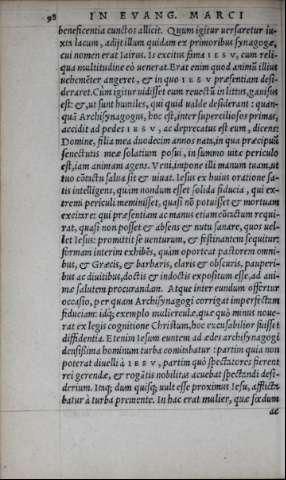 98 IN EVANG. MARCI
beneficentia cunctos allicit. Quum igitur uersaretur iu-
xta lacum, adijt illum quidam ex primoribus synagogæ,
cui nomen erat Iairus. Is excitus fama IESV, cum reli-
qua multitudine eò uenerat. Erat enim quod animũ illius
uehemẽter angeret, & in quo IESV præsentiam desi-
deraret. Cùm igitur uidisset eum reuectũ in littus, gauisus
est: & , ut sunt humiles, qui quid ualde desiderant: quan-
quã Archisynagogus, hoc est, inter superciliosos primas,
accidit ad pedes IESV, ac deprecatus est eum, dicens:
Domine, filia mea duodecim annos nata, in qua præcipuũ
senectutis meæ solatium posui, in summo uitæ periculo
est, iam animam agens. Veni, impone illi manum tuam, ad
tuo cõtactu salua sit & uiuat. Iesus ex huius oratione sa-
tis intelligens, quàm nondum esset solida fiducia, qui ex-
tremi periculi meminisset, quasi nõ potuisset & mortuam
excitare: qui præsentiam ac manus etiam cõtactum requi-
rat, quasi non posset & absens & nutu sanare, quos uel-
let Iesus: promittit se uenturum, & festinantem sequitur:
formam interim exhibẽs, quàm oporteat pastorem omni-
bus, & Græcis, & barbaris, claris & obscuris, pauperi-
bus ac diuitibus, doctis & indoctis expositum esse, ad ani-
mæ salutem procurandam. Atque inter eundum offertur
occasio, per quam Archisynagogi corrigat imperfectam
fiduciam: idq; exemplo mulierculæ, quæ quò minus noue-
rat ex legis cognitione Christum, hoc excusabilior fuisset
diffidentia. Etenim Iesum euntem ad ædes archisynagogi
densissima hominum turba comitabatur: partim quia non
poterat diuelli à IESV, partim quò spectatores fierent
rei gerendæ, & rogãtis nobilitas acuebat spectandi desi-
derium. Imq; dum quisq; uult esse proximus Iesu, afflicta
batur à turba premente. In hac erat mulier, quæ sexdum
ac